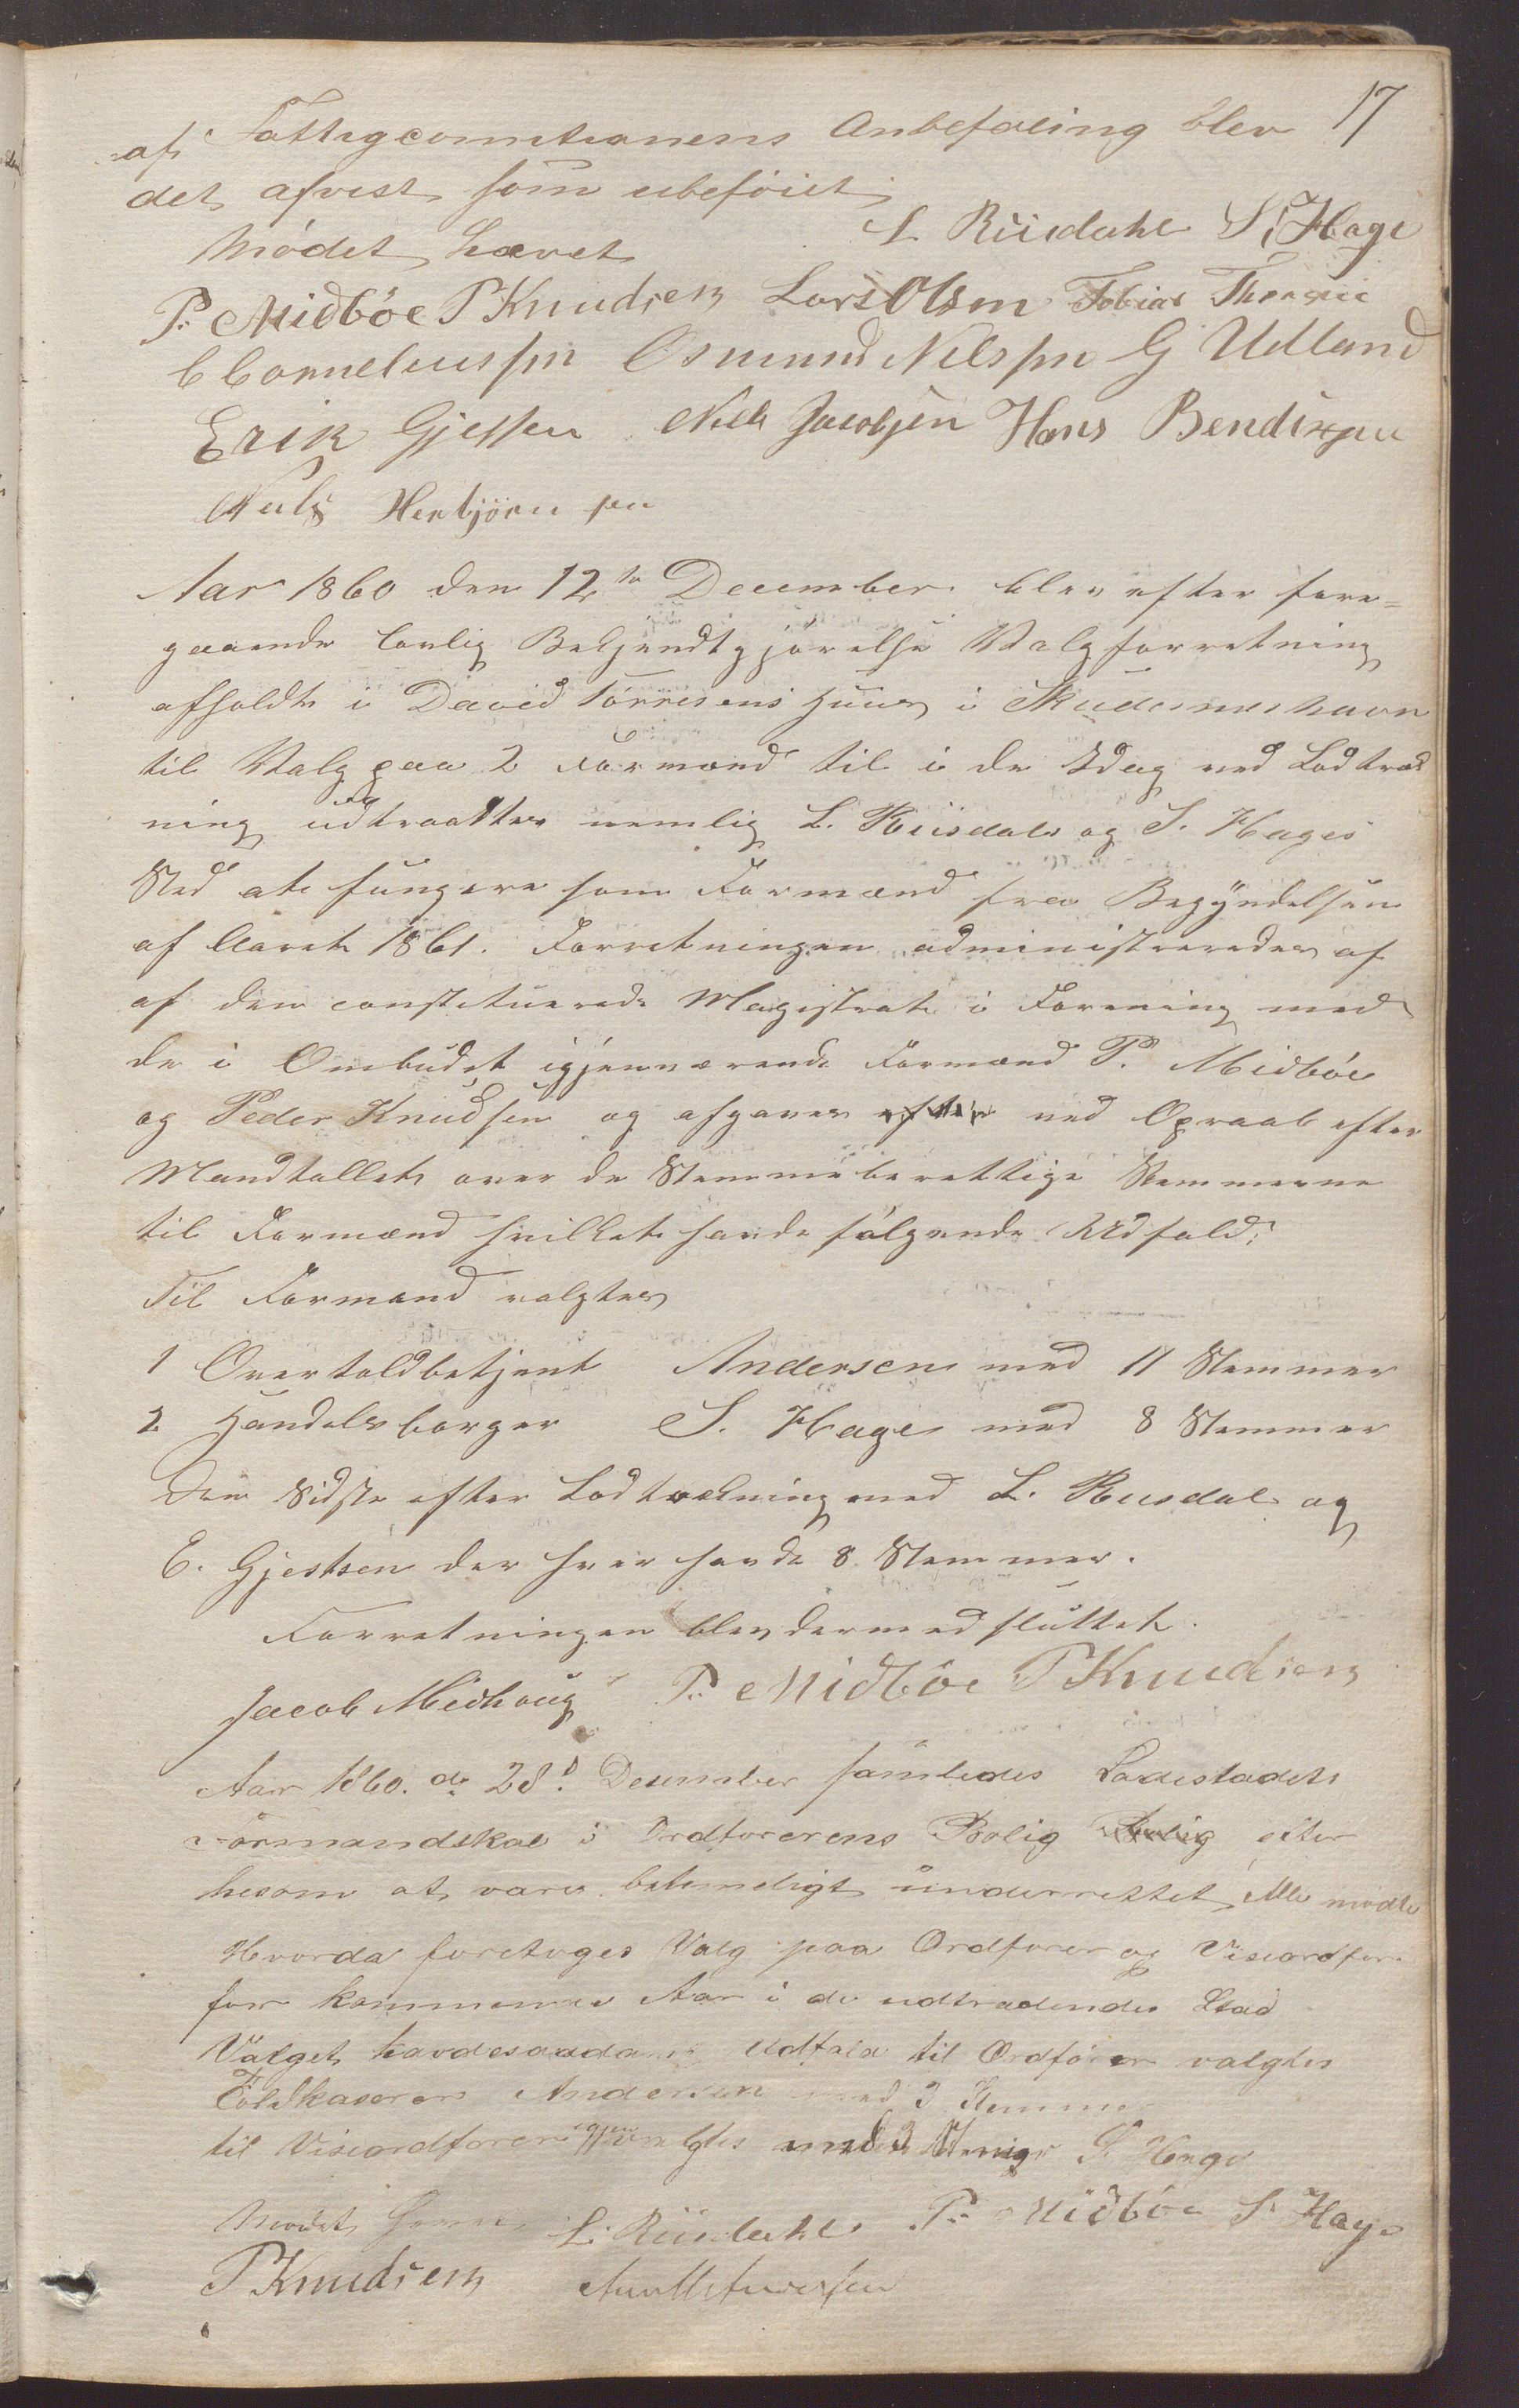 17
af Fattigcommitionens Anbefaling blev
det afvist som ubeföiet
Mödet hævet L Riisdahl S. Hage
P. Midböe P Knudsen Lars Olsen Tobias
C Corneliussen Osmund Nilssen G Udland
Erik Gjessen Niels Jacobsen Hans Bendixsen
Niels Herbjörnsen
Aar 1860 den 12te December blev efter fore-
gaaende lovlig Bekjendtgjörelse Valgforretning
afholdt i David Törresens Huus i Skudesneshavn
til Valg paa 2 Formænd til i de Idag ved Lodtræk
ning udtraadtes nemlig L. Riisdals og S. Hages
Sted at fungere som Formænd fra Begyndelsen
af Aaret 1861. Forretningen administreredes af
af den constituerede Magistrat i Forening med
de i Ombudet igjenværende Formænd P. Midböe
og Peder Knudsen og afgaves efter ved Opraab efter
Mandtallet over de Stemmeberettige Stemmerne
til Formænd hvilket havde fölgende Udfald:
Til Formænd valgtes
1 Overtoldbetjent Andersen med 11 Stemmer
2 Handelsborger S. Hage med 8 Stemmer
Den Sidste efter Lodtrækning med L. Riisdal og
E. Gjestsen der hver havde 8 Stemmer.
Forretningen blev dermed sluttet.
Jacob Midhoug P. Midböe P Knudsen
Aar 1860. d. 28d. Desember samledes Ladestadets
Formandskab i Ordforerens Bolig Bolig efter
hesom at være betimeligt underrettet, Alle mödte
Hvorda foretoges Valg paa Ordforer og Viseordforer
for kommende Aar i de udtrædendes Stæd
Valget havde saadant Udfald til Ordförer valgtes
Toldkaserer Andersen med 3 Stemmer
til Viseordforer igjen valgtes med 3 Stemer S. Hage
Mödet hævet L. Riisdahl P. Midböe S. Hage
P Knudsen Andersen